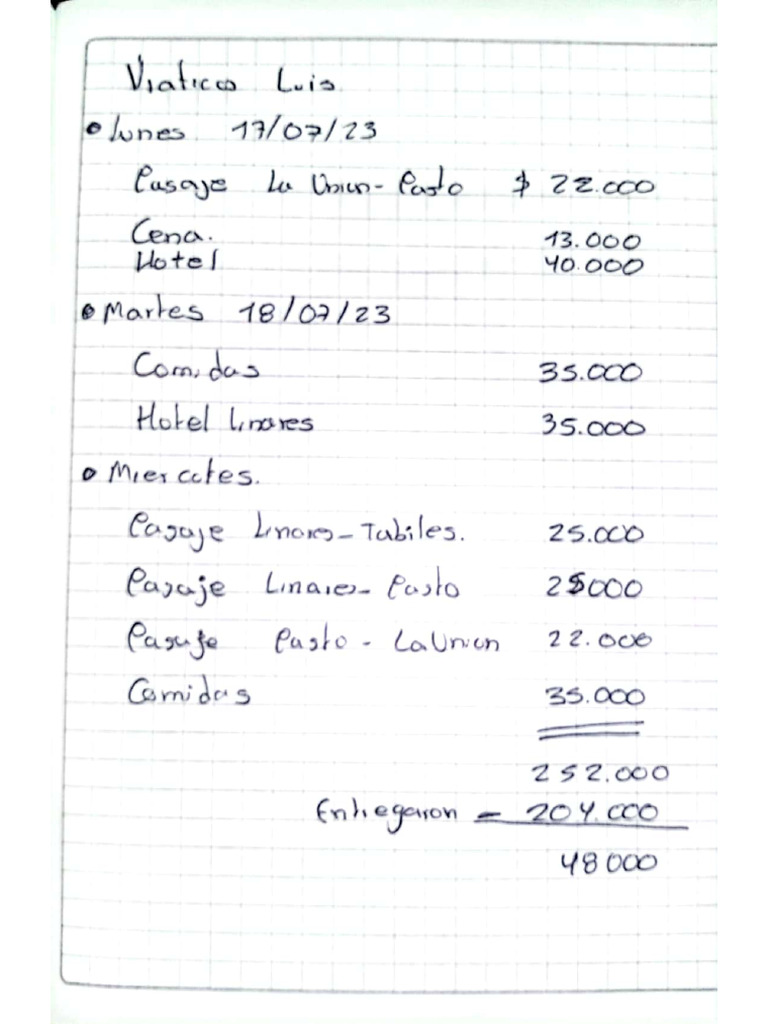 Viaticos Luis
• Lunes 17/07/23
Pasaje La Union - Pasto $ 22.000
Cena. 13.000
Hotel 40.000
• Martes 18/07/23
Comidas 35.000
Hotel Linares 35.000
• Miercoles.
Pasaje Linares - Tabiles. 25.000
Pasaje Linares - Pasto 25000
Pasaje Pasto - La Union 22.000
Comidas 35.000
252.000
Entregaron - 204.000
48000